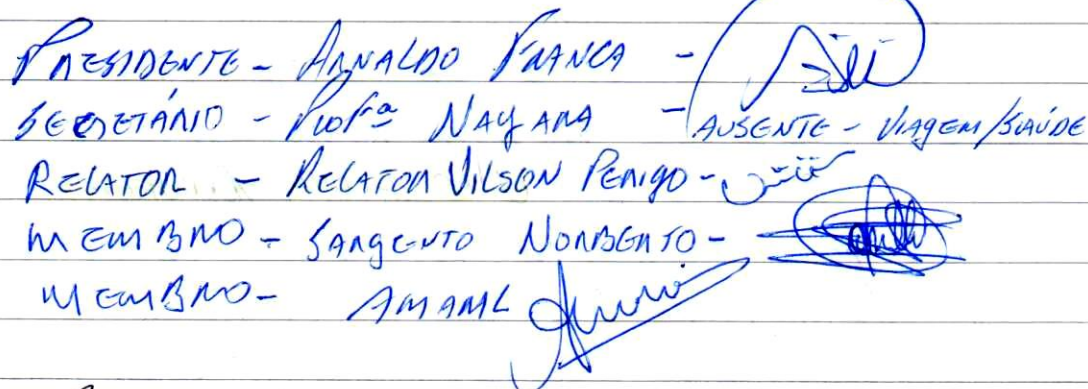 PRESIDENTE - ARNALDO FRANCA -
SECRETÁRIO - Profª NAYARA - AUSENTE - VIAGEM/SAÚDE
RELATOR - RELATOR VILSON PERIGO -
MEMBRO - SARGENTO NORBERTO -
MEMBRO - AMARAL